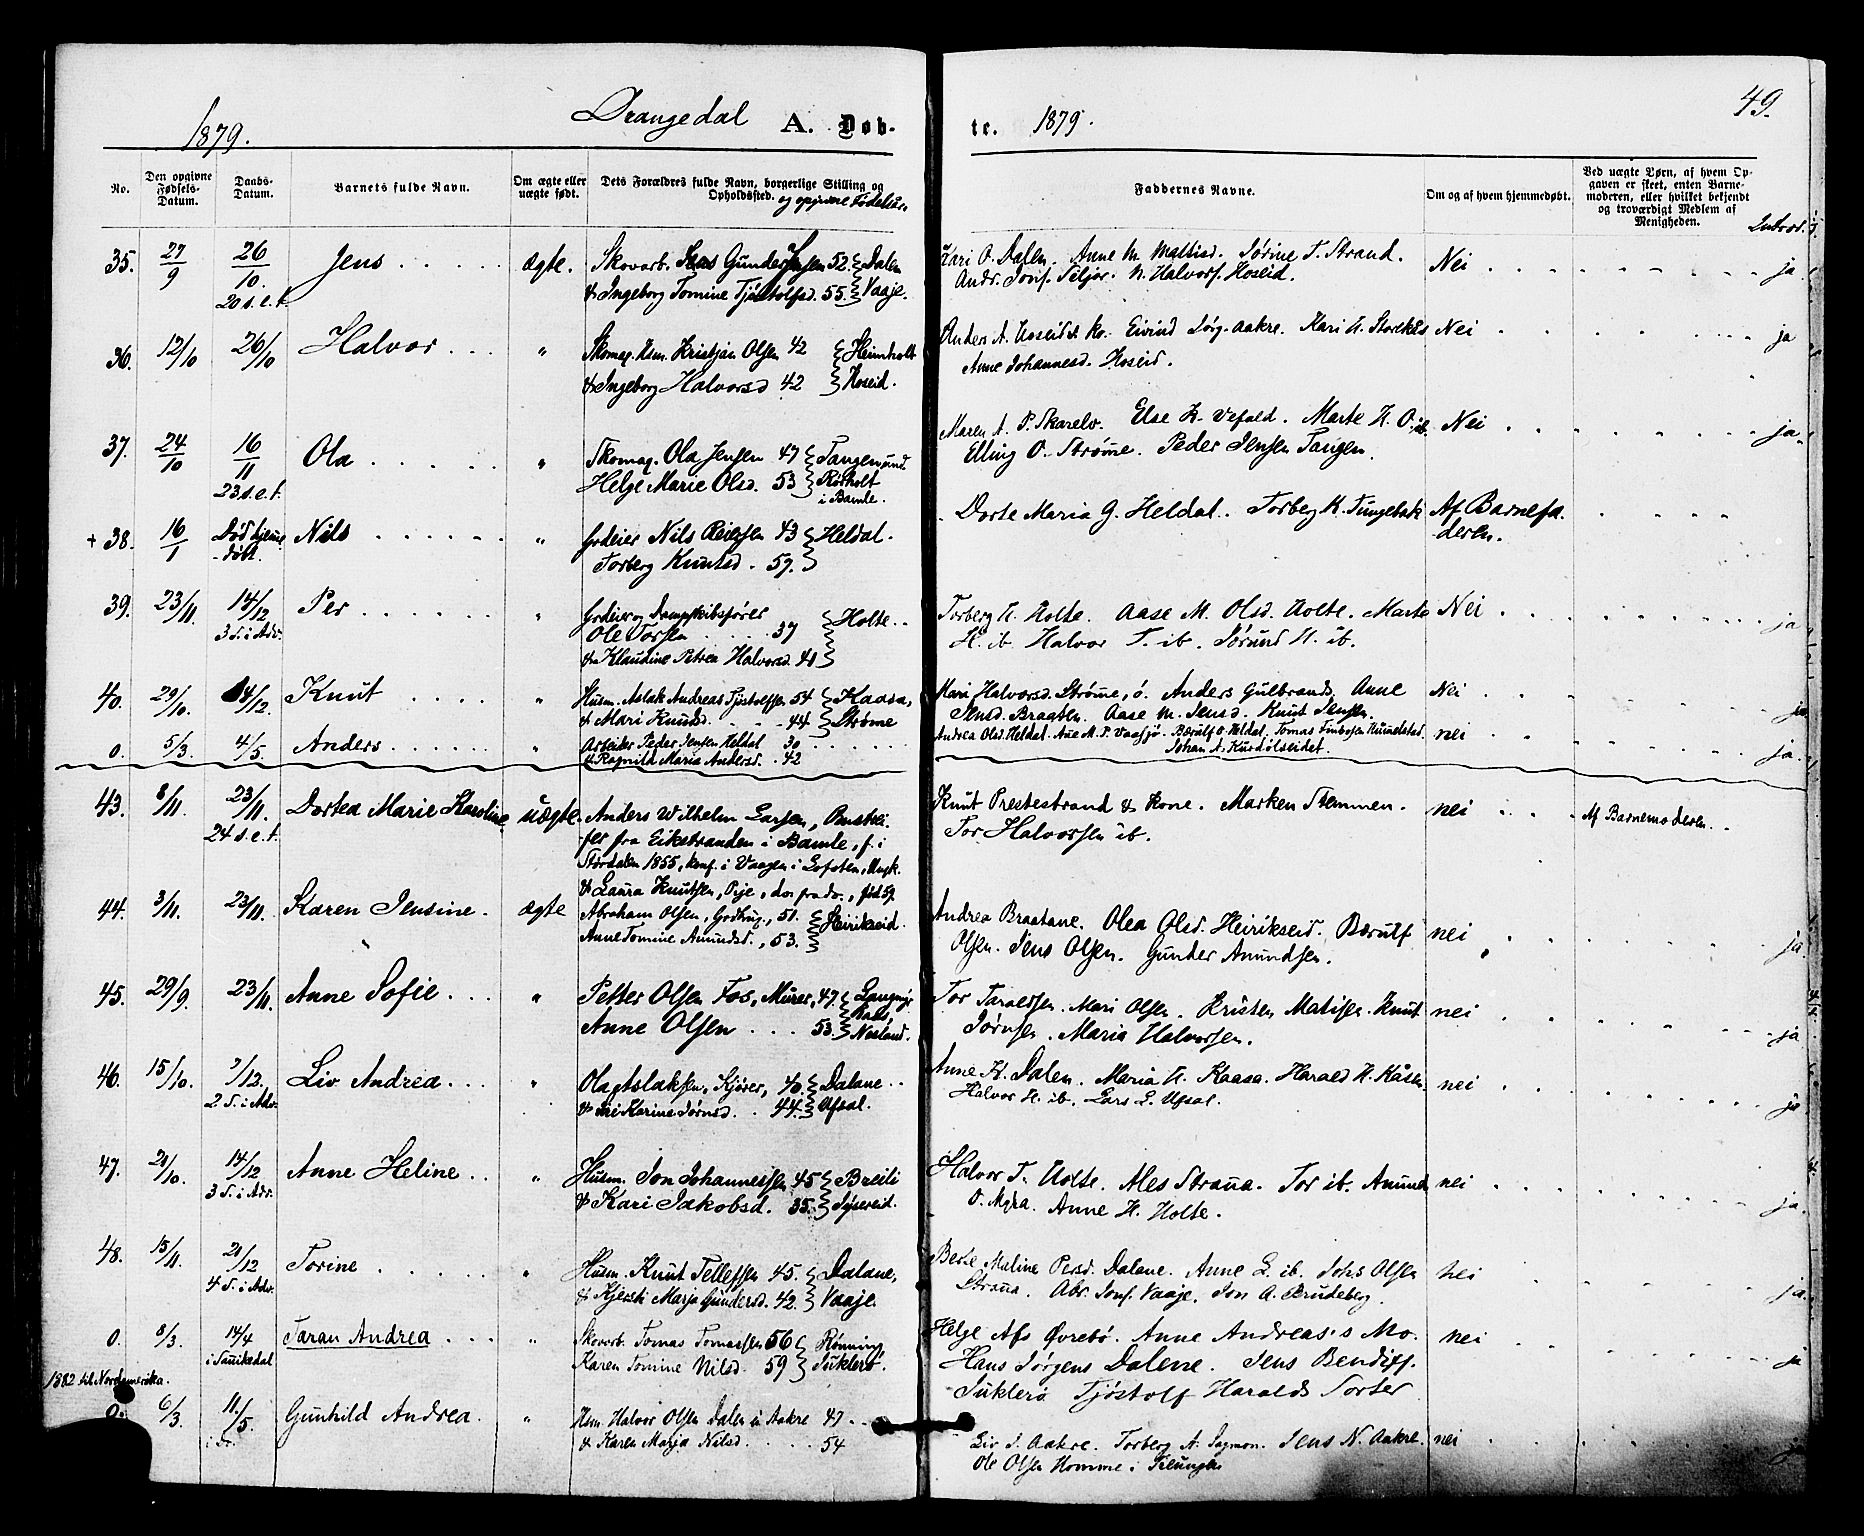 1879.
Drangedal
A. Døb-
te. 1879.
49.
No.
Den opgivne Fødsels-Datum.
Daabs-Datum.
Barnets fulde Navn.
Om ægte eller uægte født.
Dets Forældres fulde Navn, borgerlige Stilling og Opholdssted. og opgivne Fødselsår.
Faddernes Navne.
Om og af hvem hjemmedøbt.
Ved uægte Børn, af hvem Opgaven er skeet, enten Barnemoderen, eller hvilket bekjendt og troværdigt Medlem af Menigheden.
Introd.
35. 27/9 26/10. Jens ægte. Skovarb. Gunder Jensen 52. Dalen Kari O. Dalen. Anne M. Mattisd. Jørine T. Strand. Nei ja
20 s. e. t. & Ingeborg Tomine Tjøstolfsd. 55. Vaaje. Andr. Jonf. Teljor. N. Halvorf. Hoseid.
36. 12/10 26/10 Halvor " Skomag. Hsm. Kristjan Olsen 42 Heimholt Anders A. Hoseid & ko. Eivind Jørg. Aakre. Kari H. Nei ja
& Ingeborg Halvorsd 42 Hoseid. Anne Johannesd. Hoseid.
37. 24/10 16/11 Ola " Skomag. Ola Jensen 47 Tangen und. Maren A. P. Else K. Vefald. Marte H. O. ib. Nei ja
23 s. e. t. Helge Marie Olsd. 53 Rørholt i Bamle. Elling O. Strøme. Peder Jensen Tangen.
+ 38. 16/1 Død hjemme-døbt. Nils " Grdeier Nils Reiersen 43 Heldal. Dorte Maria G. Heldal. Torberg K. Tungebak Af Barnefa-
Torberg Knutsd. 57. deren.
39. 23/11. 14/12 Per " Grdeier og Dampskibsfører Holte Torberg H. Holte. Aase M. Olsd. Holte. Marte Nei ja
3 S. i Adv. Ole Torsen 37 H. ib. Halvor T. ib. Jørund H. ib.
& Klaudine Petrea Halvorsd. 41
40. 29/10. 14/12. Knut " Husm. Aslak Andreas Tjøstolfsen 54 Kaasa, Mari Halvorsd. Strøme, ø. Anders Gulbrands. Anne Nei ja
& Mari Knutsd. 44 Strøme Jensd. Braaten. Aase M. Jensd. Knut Jensen.
0. 5/3. 4/5. Anders " Arbeider Peder Jensen Heldal 30 Andrea Olsd. Heldal. Ane M. P. Vaasjø. Bærulf O. Heldal. Tomas nei ja.
& Ragnild Maria Andersd. 42 Johan A. Kurdølseidet.
43. 8/11. 23/11. Dortea Marie Karoline uægte. Anders Wilhelm Larsen, Knut Prestestrand & Kone. Marken Stemmen. nei Af Barnemoderen
24 s. e. t. fra Eikstranden i Bamle, f. i Tor Halvorsen ib.
Størdalen 1855, konf. i Vaagen i Lofoten, Ungk.
& Laura Knutsen, Pije, do fra do., født 59.
44. 3/11. 23/11. Karen Jensine. ægte Abraham Olsen, Grdbrug., 51. Heirikseid. Andrea Braatane. Olea Olsd. Heirikseid. Bærulf nei ja
Anne Tomine Amundsd., 53. Olsen. Jens Olsen. Gunder Amundsen.
45. 29/9. 23/11. Anne Sofie " Petter Olsen Fos, Murer, 47. Tor Taraldsen. Mari Olsen. Kristen Matisen. Knut nei ja
Anne Olsen 53. Nesland. Jørnsen. Maria Halvorsen.
46. 15/10. 7/12. Liv Andrea " Ola Aslaksen, Kjører, 40. Dalane Anne K. Dalen. Maria H. Kaasa. Harald H. Kåsen. nei ja
2 S. i Adv. & Karine Jørnsd. 44. Ufsal. Halvor H. ib. Lars L. Ufsal.
47. 21/10. 14/12 Anne Heline " Husm. Jon Johannessen 45 Breili Halvor T. Holte. Ales Straua. Tor ib. Amund nei ja.
3 S. i Adv. & Kari Jakobsd. 35. O. Myra. Anne H. Holte.
48. 15/11. 21/12 Torine " Husm. Knut Tellefsen 45. Dalane, Berte Maline Persd. Dalane. Anne L. ib. Johs Olsen nei ja
4 S. i Adv. & Kjersti Marja Gundersd. 42. Vaaje. Straua. Abr. Jonf. Vaaje. Jon A. Brudeberg.
0. 8/3. 14/4 Taran Andrea " Skovarb. Tomas Tomassen 56 Rønning, Helge Afs Øvrebø. Anne Andreas's Mo. nei ja
i Sanikedal Karen Tomine Nilsd. 59 Suklerø. Hans Jørgens Dalene. Jens Bendixf.
1882 til Nordamerika. Suklerø Tjøstolf Haralds Sorter
0. 6/3. 11./5. Gunhild Andrea. " Hsm. Halvor Olsen Dalen u. Aakre 47 Liv J. Aakre. Torberg A. Jens N. Aakre. nei ja
i Dr. & Karen Marja Nilsd. 54 Ole Olsen Homme i Treungen